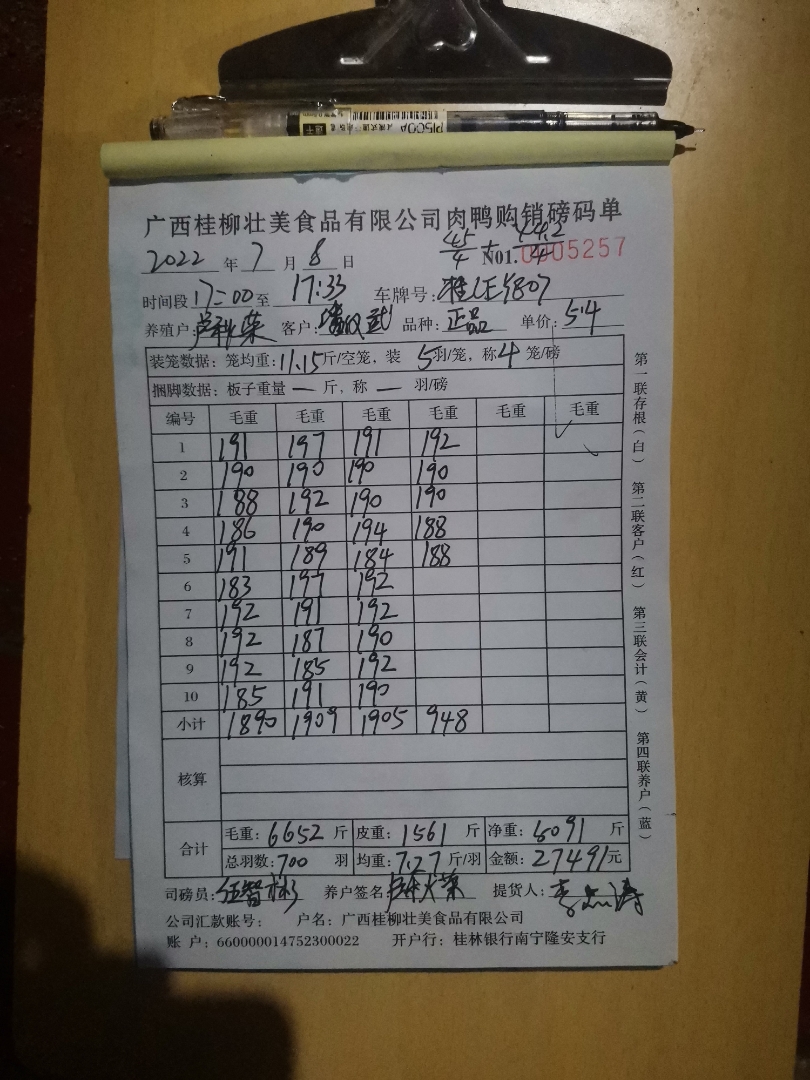 PI500A
广西桂柳壮美食品有限公司肉鸭购销磅码单
45/4 + 44.2/4
2022年7月8日 N01.0005257
时间段17:00至17:33 车牌号:桂
养殖户: 客户: 品种:正品 单价:5.4
装笼数据:笼均重:11.15斤/空笼,装5羽/笼,称4笼/磅
捆脚数据:板子重量 — 斤,称 — 羽/磅
编号 毛重 毛重 毛重 毛重 毛重 毛重
1 191 197 191 192
2 190 190 190 190
3 188 192 190 190
4 186 190 194 188
5 191 189 184 188
6 183 197 192
7 192 191 192
8 192 187 190
9 192 185 192
10 185 191 190
小计 1890 1909 1905 948
核算
合计 毛重:6652斤 皮重:1561斤 净重:5091斤
总羽数:700羽 均重:7.27斤/羽 金额:27491元
司磅员: 养户签名: 提货人:
公司汇款账号: 户名:广西桂柳壮美食品有限公司
账 户:660000014752300022 开户行:桂林银行南宁隆安支行
第一联存根(白) 第二联客户(红) 第三联会计(黄) 第四联养户(蓝)